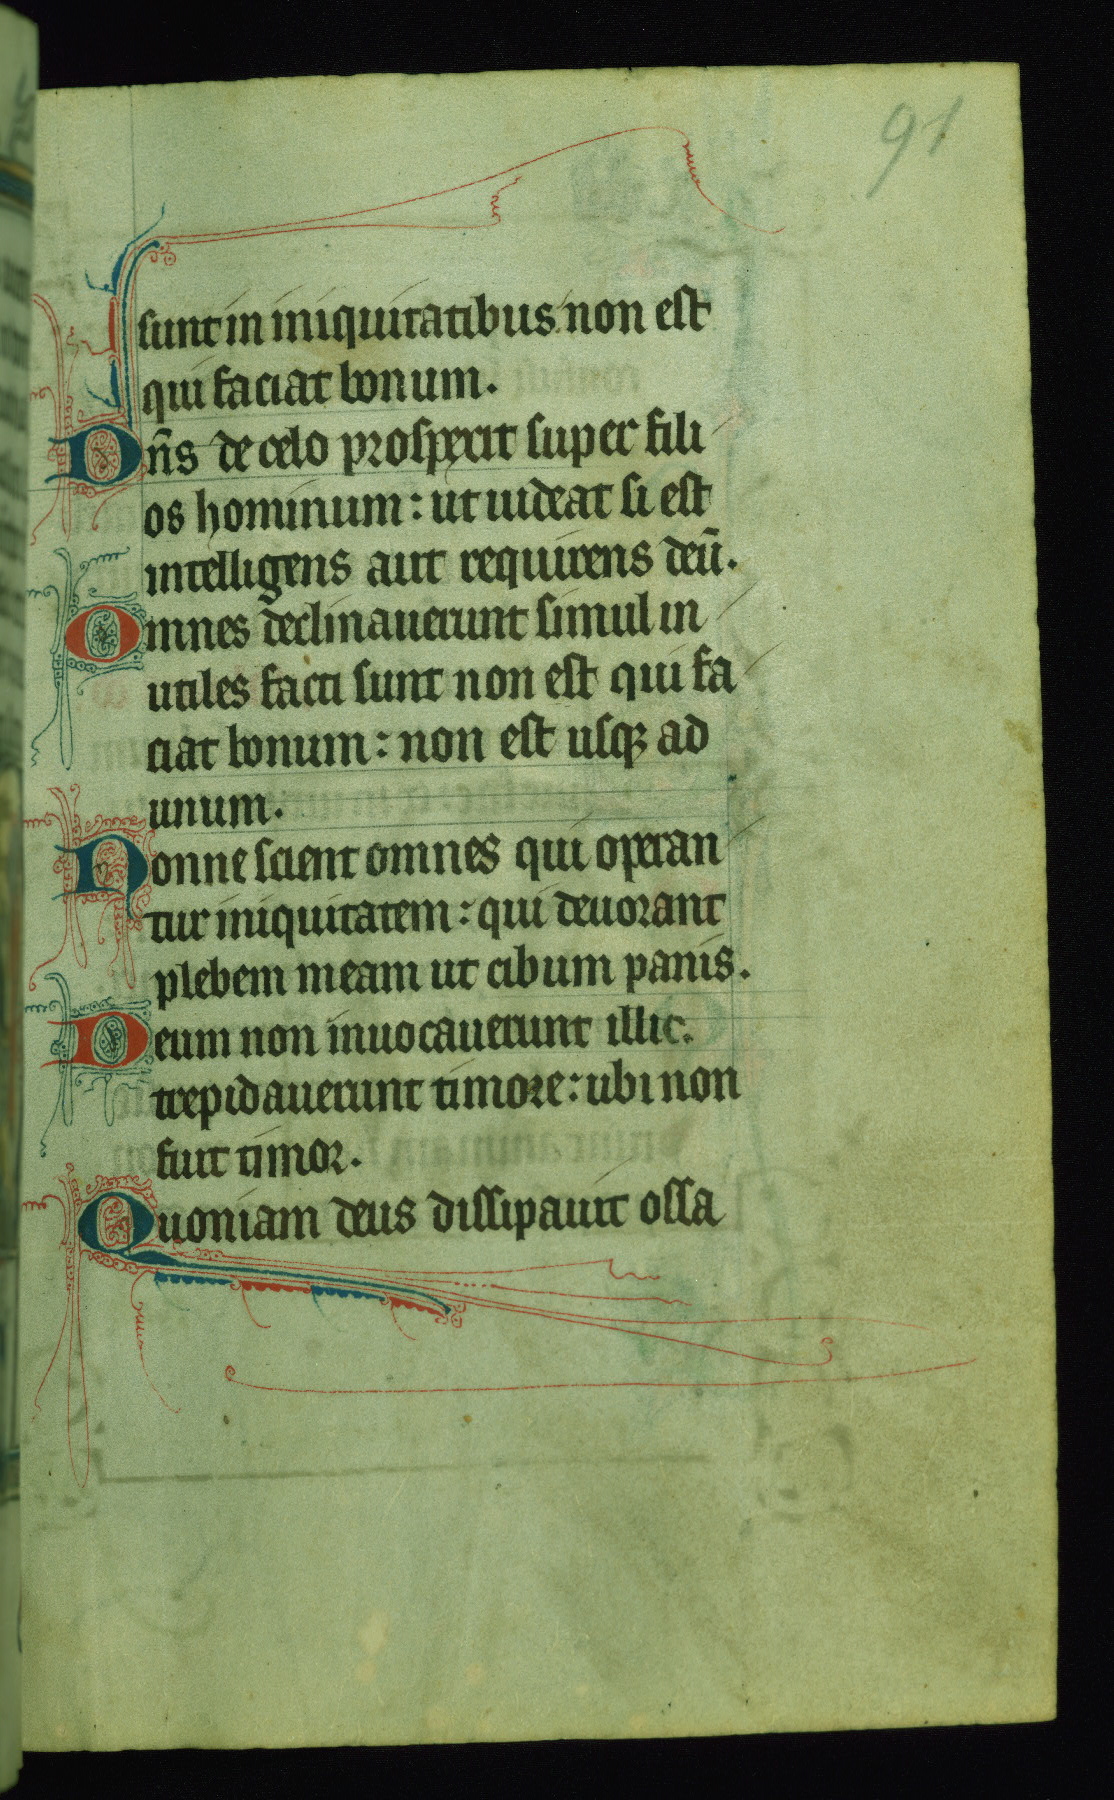 91
sunt in iniquitatibus non est
qui faciat bonum.
Dñs de celo prospexit super fili
os hominum: ut uideat si est
intelligens aut requirens deū.
Omnes declinauerunt simul in
utiles facti sunt non est qui fa
ciat bonum: non est usqꝫ ad
unum.
Nonne scient omnes qui operan
tur iniquitatem: qui deuorant
plebem meam ut cibum panis.
Deum non inuocauerunt illic.
trepidauerunt timore: ubi non
fuit timor.
Quoniam deus dissipauit ossa